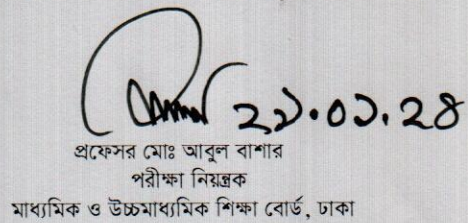 ২১.০১.২৪
প্রফেসর মোঃ আবুল বাশার
পরীক্ষা নিয়ন্ত্রক
মাধ্যমিক ও উচ্চমাধ্যমিক শিক্ষা বোর্ড, ঢাকা